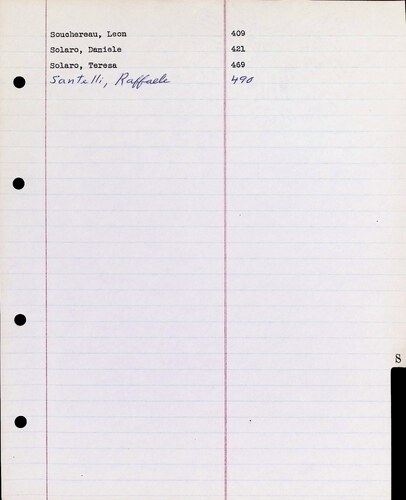 Souchereau, Leon 409
Solaro, Daniele 421
Solaro, Teresa 469
Santelli, Raffaele 490
S